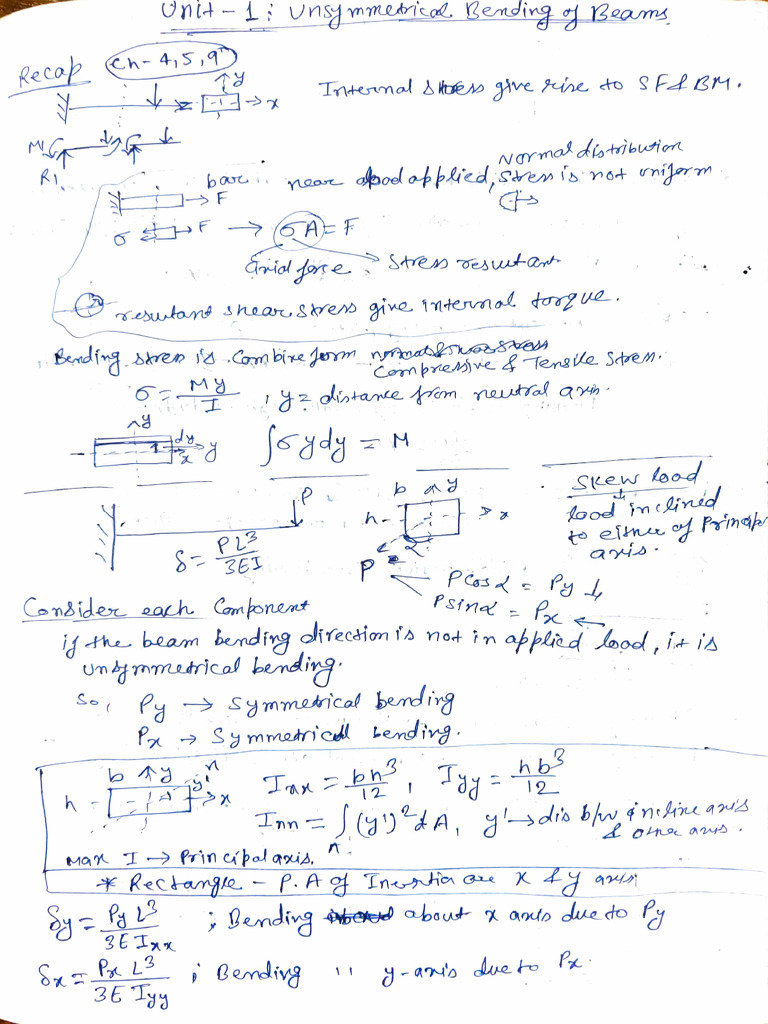 Unit - 1 : Unsymmetrical Bending of Beams
Recap (Ch - 4, 5, 9)
y
x
Internal stress give rise to SF & BM.
M1
R1
Normal distribution
bar near load applied, stress is not uniform
F
σ F → σA = F
Axial force Stress resultant
resultant shear stress give internal torque.
Bending stress is combine form
compressive & Tensile stress.
σ = My/I , y = distance from neutral axis.
y dy y x ∫σ y dy = M
Skew load
load inclined to either of Principal axis.
P
δ = PL³/3EI
b y h x α P
P cosα = Py ↓
P sinα = Px ←
Consider each component
if the beam bending direction is not in applied load, it is
unsymmetrical bending.
So, Py → symmetrical bending
Px → symmetrical bending.
b y y' n h x
Ixx = bh³/12 , Iyy = hb³/12
Inn = ∫A (y')² dA, y' → dis b/w incline axis & other axis.
Max I → Principal axis.
* Rectangle - P.A of Inertia are x & y axis
δy = Py L³/3E Ixx ; Bending about x axis due to Py
δx = Px L³/3E Iyy ; Bending " y-axis due to Px.